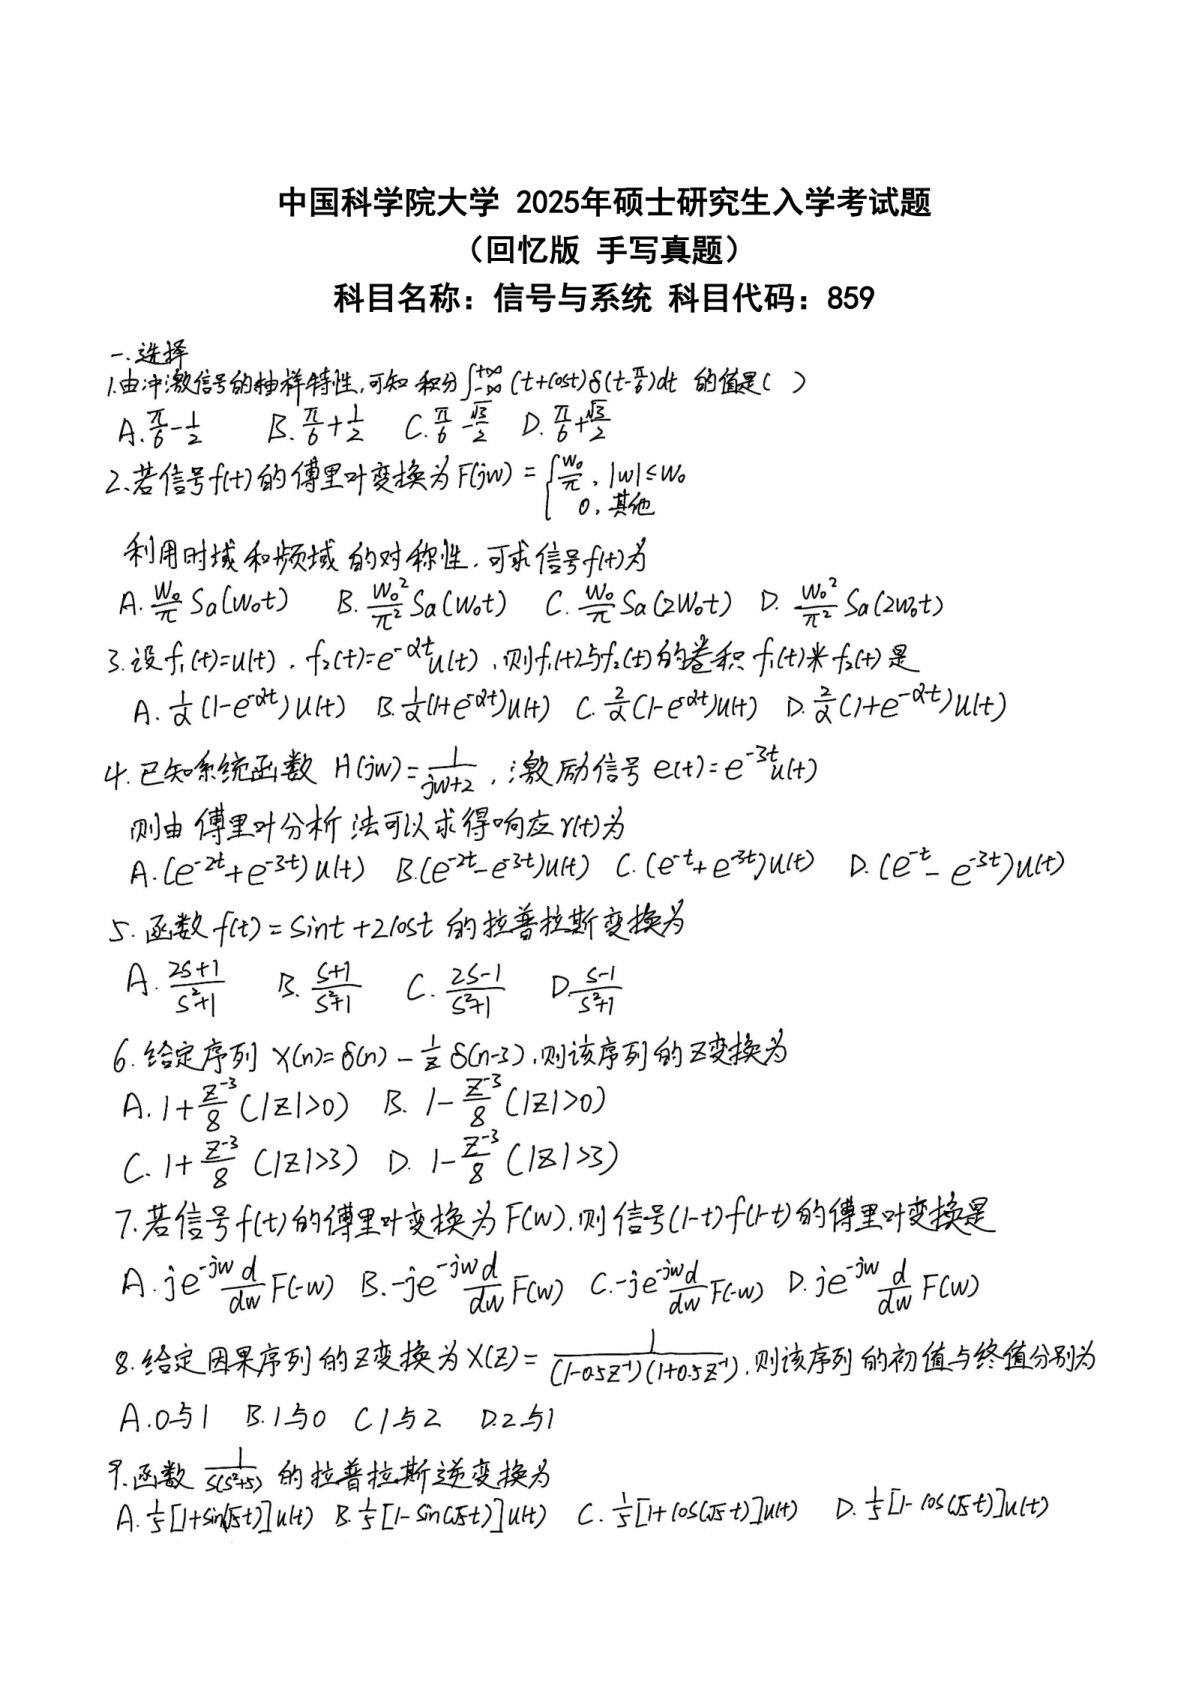 中国科学院大学 2025年硕士研究生入学考试题
（回忆版 手写真题）
科目名称：信号与系统 科目代码：859
一.选择
1.由冲激信号的抽样特性,可知 积分∫_{-∞}^{+∞}(t+cost)δ(t-π/6)dt 的值是( )
A.π/6-1/2 B.π/6+1/2 C.π/6-√3/2 D.π/6+√3/2
2.若信号f(t)的傅里叶变换为F(jw)={w₀/π, |w|≤w₀
0,其他
利用时域和频域的对称性,可求信号f(t)为
A.w₀/π Sa(w₀t) B.w₀²/π² Sa(w₀t) C.w₀/π Sa(2w₀t) D.w₀²/π² Sa(2w₀t)
3.设f₁(t)=u(t),f₂(t)=e^{-αt}u(t),则f₁(t)与f₂(t)的卷积 f₁(t)*f₂(t)是
A.1/α(1-e^{-αt})u(t) B.1/α(1+e^{-αt})u(t) C.2/α(1-e^{-αt})u(t) D.2/α(1+e^{-αt})u(t)
4.已知系统函数 H(jw)=1/(jw+2),激励信号 e(t)=e^{-3t}u(t)
则由傅里叶分析法可以求得响应r(t)为
A.(e^{-2t}+e^{-3t})u(t) B.(e^{-2t}-e^{-3t})u(t) C.(e^{-t}+e^{-3t})u(t) D.(e^{-t}-e^{-3t})u(t)
5.函数f(t)=sint+2cost 的拉普拉斯变换为
A.(2s+1)/(s²+1) B.(s+1)/(s²+1) C.(2s-1)/(s²+1) D.(s-1)/(s²+1)
6.给定序列 x(n)=δ(n)-1/z δ(n-3),则该序列的Z变换为
A.1+z^{-3}/8 (|z|>0) B.1-z^{-3}/8 (|z|>0)
C.1+z^{-3}/8 (|z|>3) D.1-z^{-3}/8 (|z|>3)
7.若信号f(t)的傅里叶变换为F(w),则信号(1-t)f(1-t)的傅里叶变换是
A.je^{-jw} d/dw F(-w) B.-je^{-jw} d/dw F(w) C.-je^{-jw} d/dw F(-w) D.je^{-jw} d/dw F(w)
8.给定因果序列的Z变换为X(Z)=1/((1-0.5z⁻¹)(1+0.5z⁻¹)),则该序列的初值与终值分别为
A.0与1 B.1与0 C1与2 D.2与1
9.函数 1/(s(s²+5)) 的拉普拉斯逆变换为
A.1/5[1+sin(√5t)]u(t) B.1/5[1-sin(√5t)]u(t) C.1/5[1+cos(√5t)]u(t) D.1/5[1-cos(√5t)]u(t)